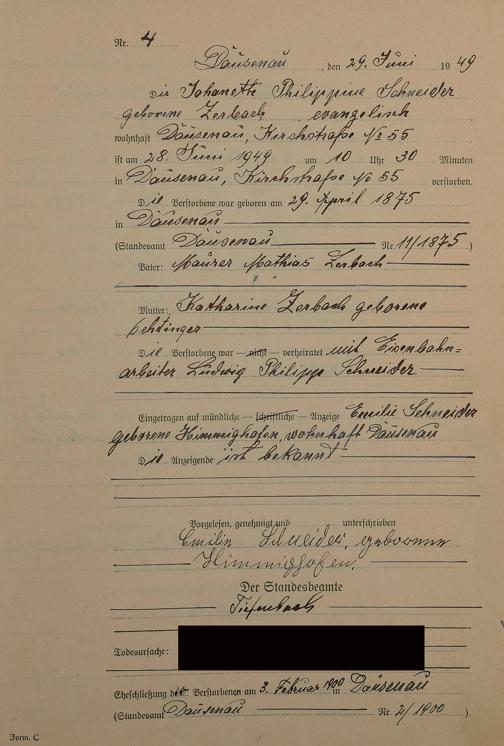 Nr. 4
Dausenau, den 29. Juni 1949
Die Johanette Philippine Schneider
geborene Zerbach, evangelisch
wohnhaft Dausenau, Kirchstraße No 55
ist am 28. Juni 1949 um 10 Uhr 30 Minuten
in Dausenau, Kirchstraße No 55 verstorben.
Die Verstorbene war geboren am 29. April 1875
in Dausenau
(Standesamt Dausenau Nr. 11/1875)
Vater: Maurer Mathias Zerbach
Mutter: Katharine Zerbach geborene
Die Verstorbene war — nicht — verheiratet mit Eisenbahn=
arbeiter Ludwig Philipp Schneider
Eingetragen auf mündliche — schriftliche — Anzeige Emilie Schneider
geborene Himmighofen, wohnhaft Dausenau
Die Anzeigende ist bekannt
Vorgelesen, genehmigt und unterschrieben
Emilie Schneider, geborenne
Himmighofen.
Der Standesbeamte
Tiefenbach
Todesursache:
Eheschließung der Verstorbenen am 3. Februar 1900 in Dausenau
(Standesamt Dausenau Nr. 2/1900)
Form. C